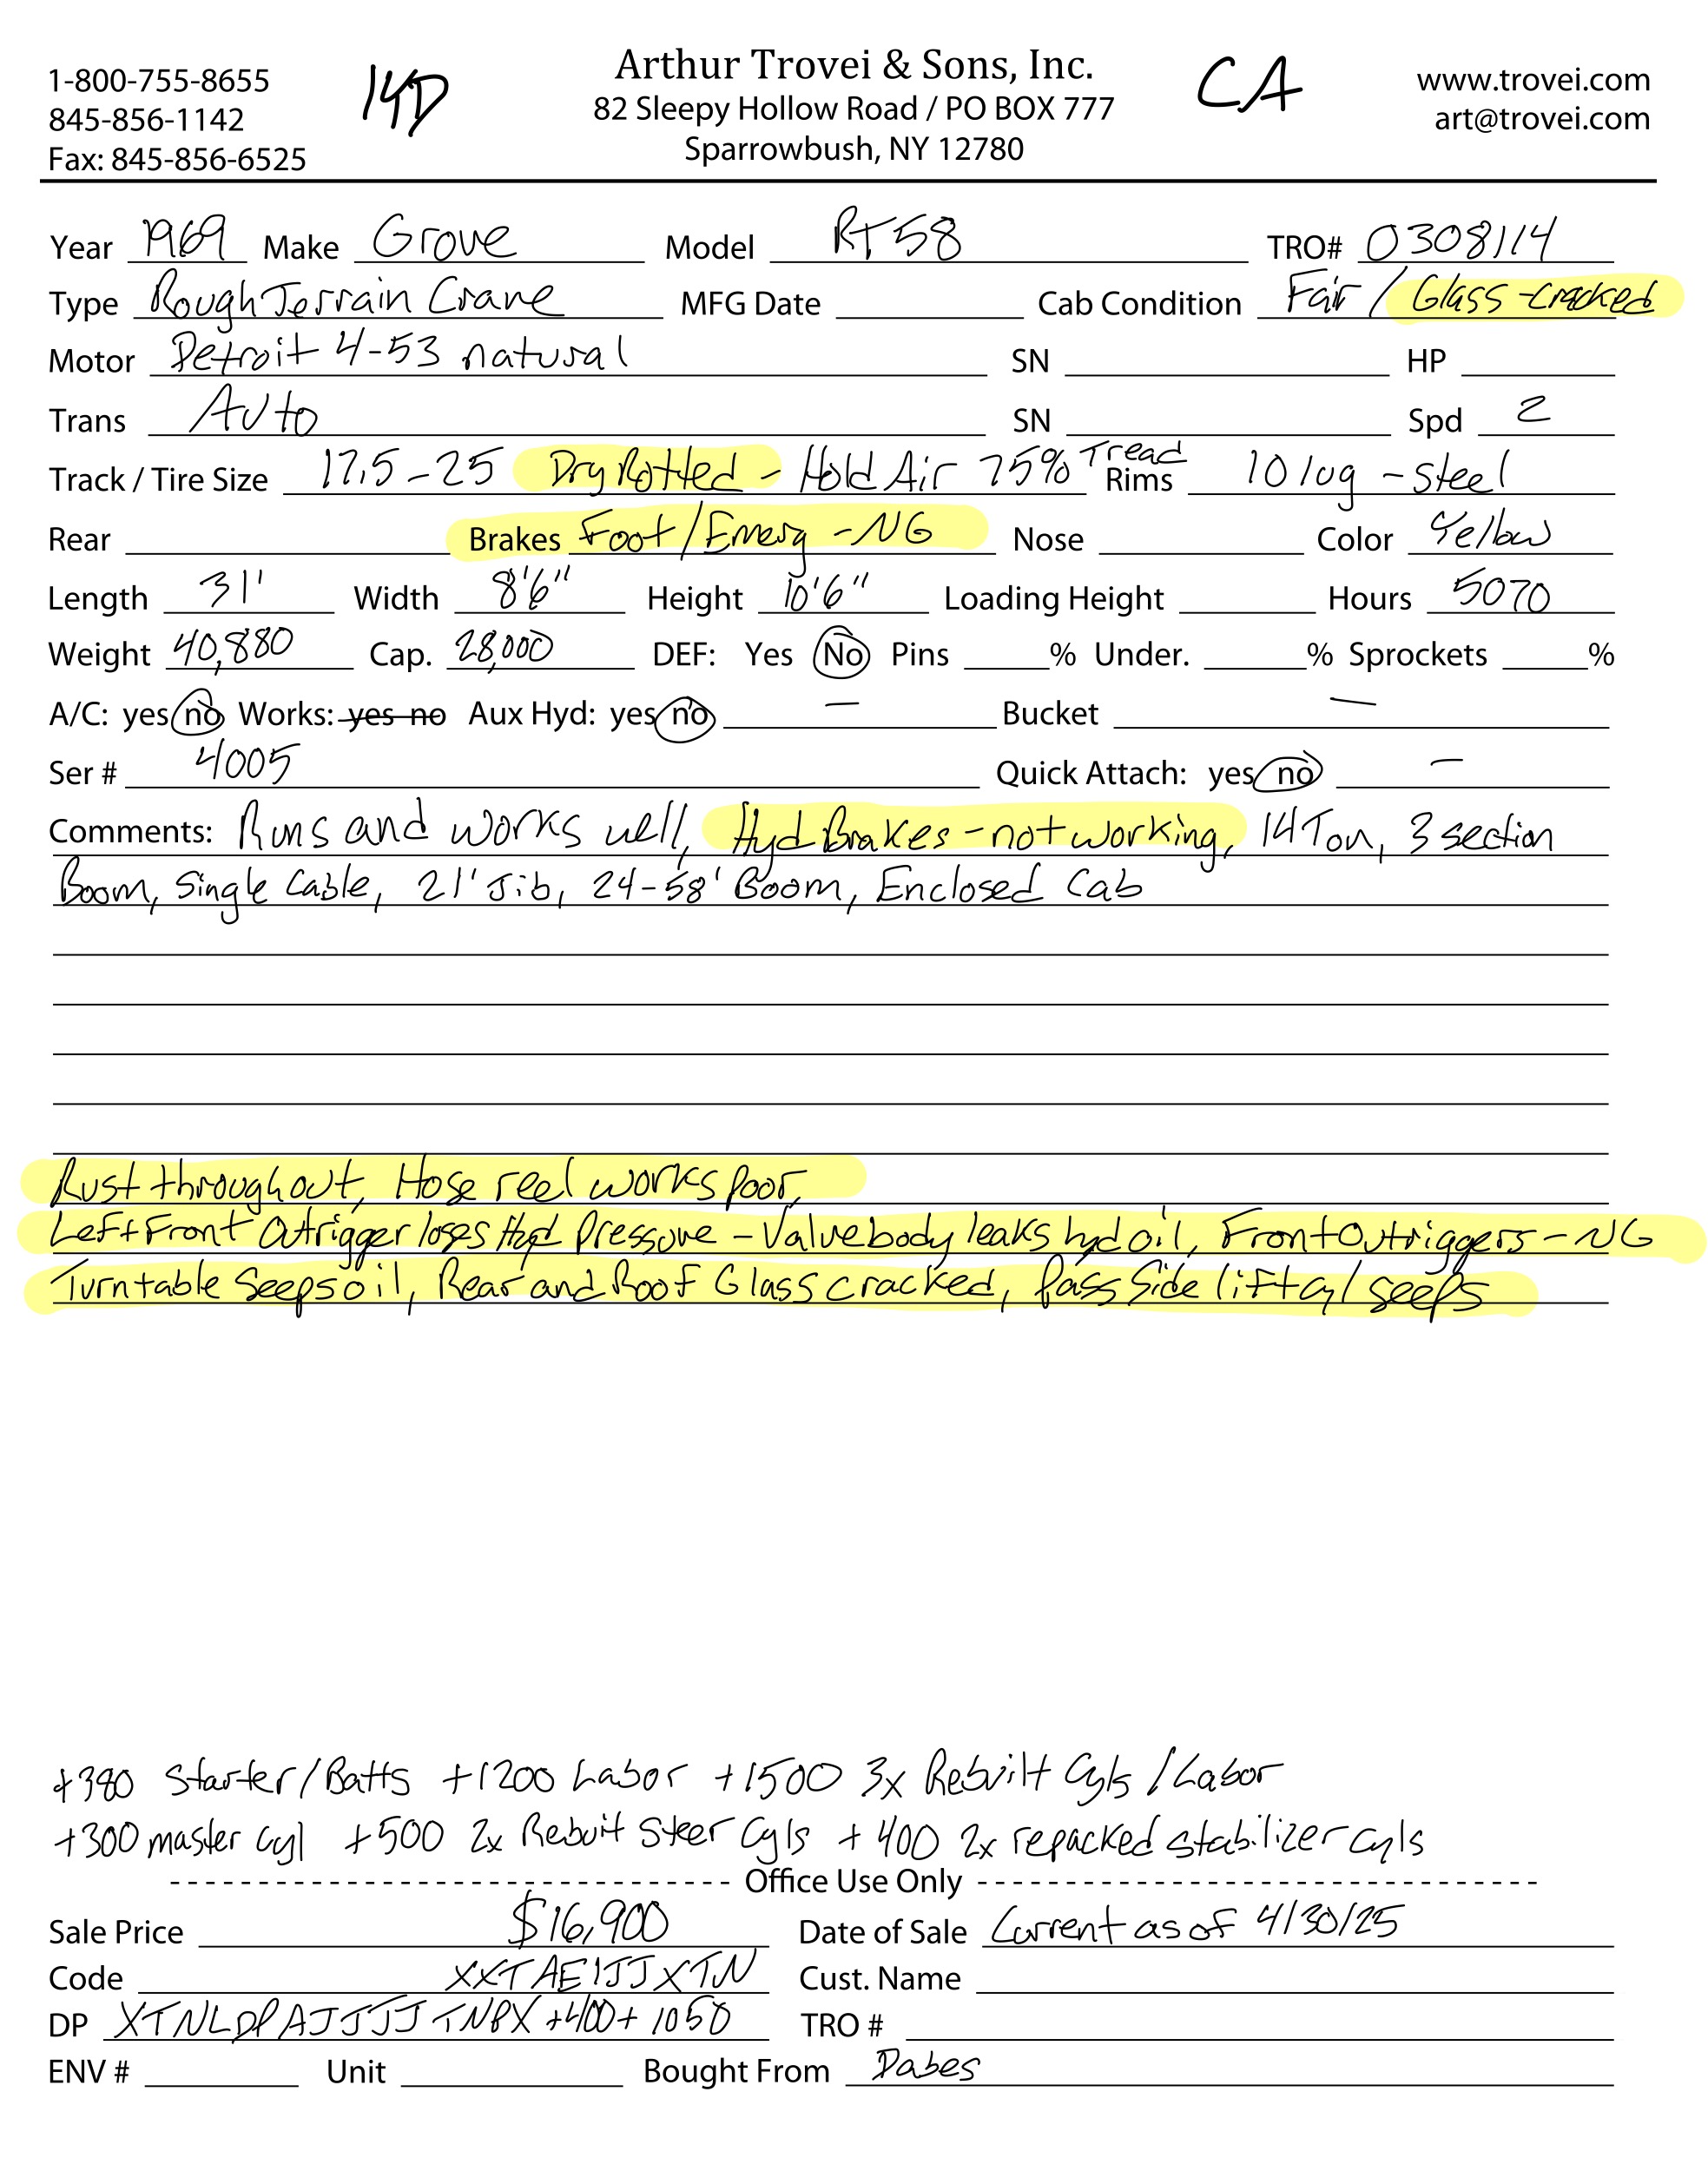 1-800-755-8655
845-856-1142
Fax: 845-856-6525
Arthur Trovei & Sons, Inc.
82 Sleepy Hollow Road / PO BOX 777
Sparrowbush, NY 12780
CA
www.trovei.com
art@trovei.com
Year 1969 Make Grove Model RT58 TRO# 0308114
Type Rough Terrain Crane MFG Date Cab Condition Fair / Glass - cracked
Motor Detroit 4-53 natural SN HP
Trans Auto SN Spd 2
Track / Tire Size 17.5-25 Dry Rotted - Hold Air 75% Tread Rims 10 lug - steel
Rear Brakes Foot/Emerg - NG Nose Color Yellow
Length 31' Width 8'6" Height 10'6" Loading Height Hours 5070
Weight 40,880 Cap. 28,000 DEF: Yes No Pins % Under. % Sprockets %
A/C: yes no Works: yes no Aux Hyd: yes no - Bucket -
Ser # 4005 Quick Attach: yes no -
Comments: Runs and works well, Hyd Brakes - not working, 14 Ton, 3 section
Boom, Single Cable, 21' Jib, 24-58' Boom, Enclosed Cab
Rust throughout, Hose reel works poor,
Left Front Outrigger loses Hyd Pressure - Valve body leaks hyd oil, Front Outriggers - NG
Turntable Seeps oil, Rear and Roof Glass cracked, Pass Side lift cyl seeps
+380 Starter/Batts +1200 Labor +1500 3x Rebuilt Cyls / Labor
+300 master cyl +500 2x Rebuit Steer Cyls + 400 2x repacked stabilizer cyls
Office Use Only
Sale Price $16,900 Date of Sale Current as of 4/30/25
Code XXTAE1JJXTN Cust. Name
DP +400+ 1050 TRO #
ENV # Unit Bought From Dabes